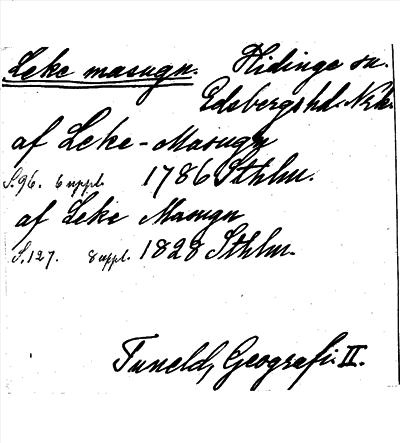 Leke masugn. Hidinge sn.
Edsbergs hd. Nrk.
af Leke-Masugn
S. 96. 6 uppl. 1786 Sthlm.
af Leke Masugn
S. 127. 8 uppl. 1828 Sthlm.
Tuneld, Geografi II.